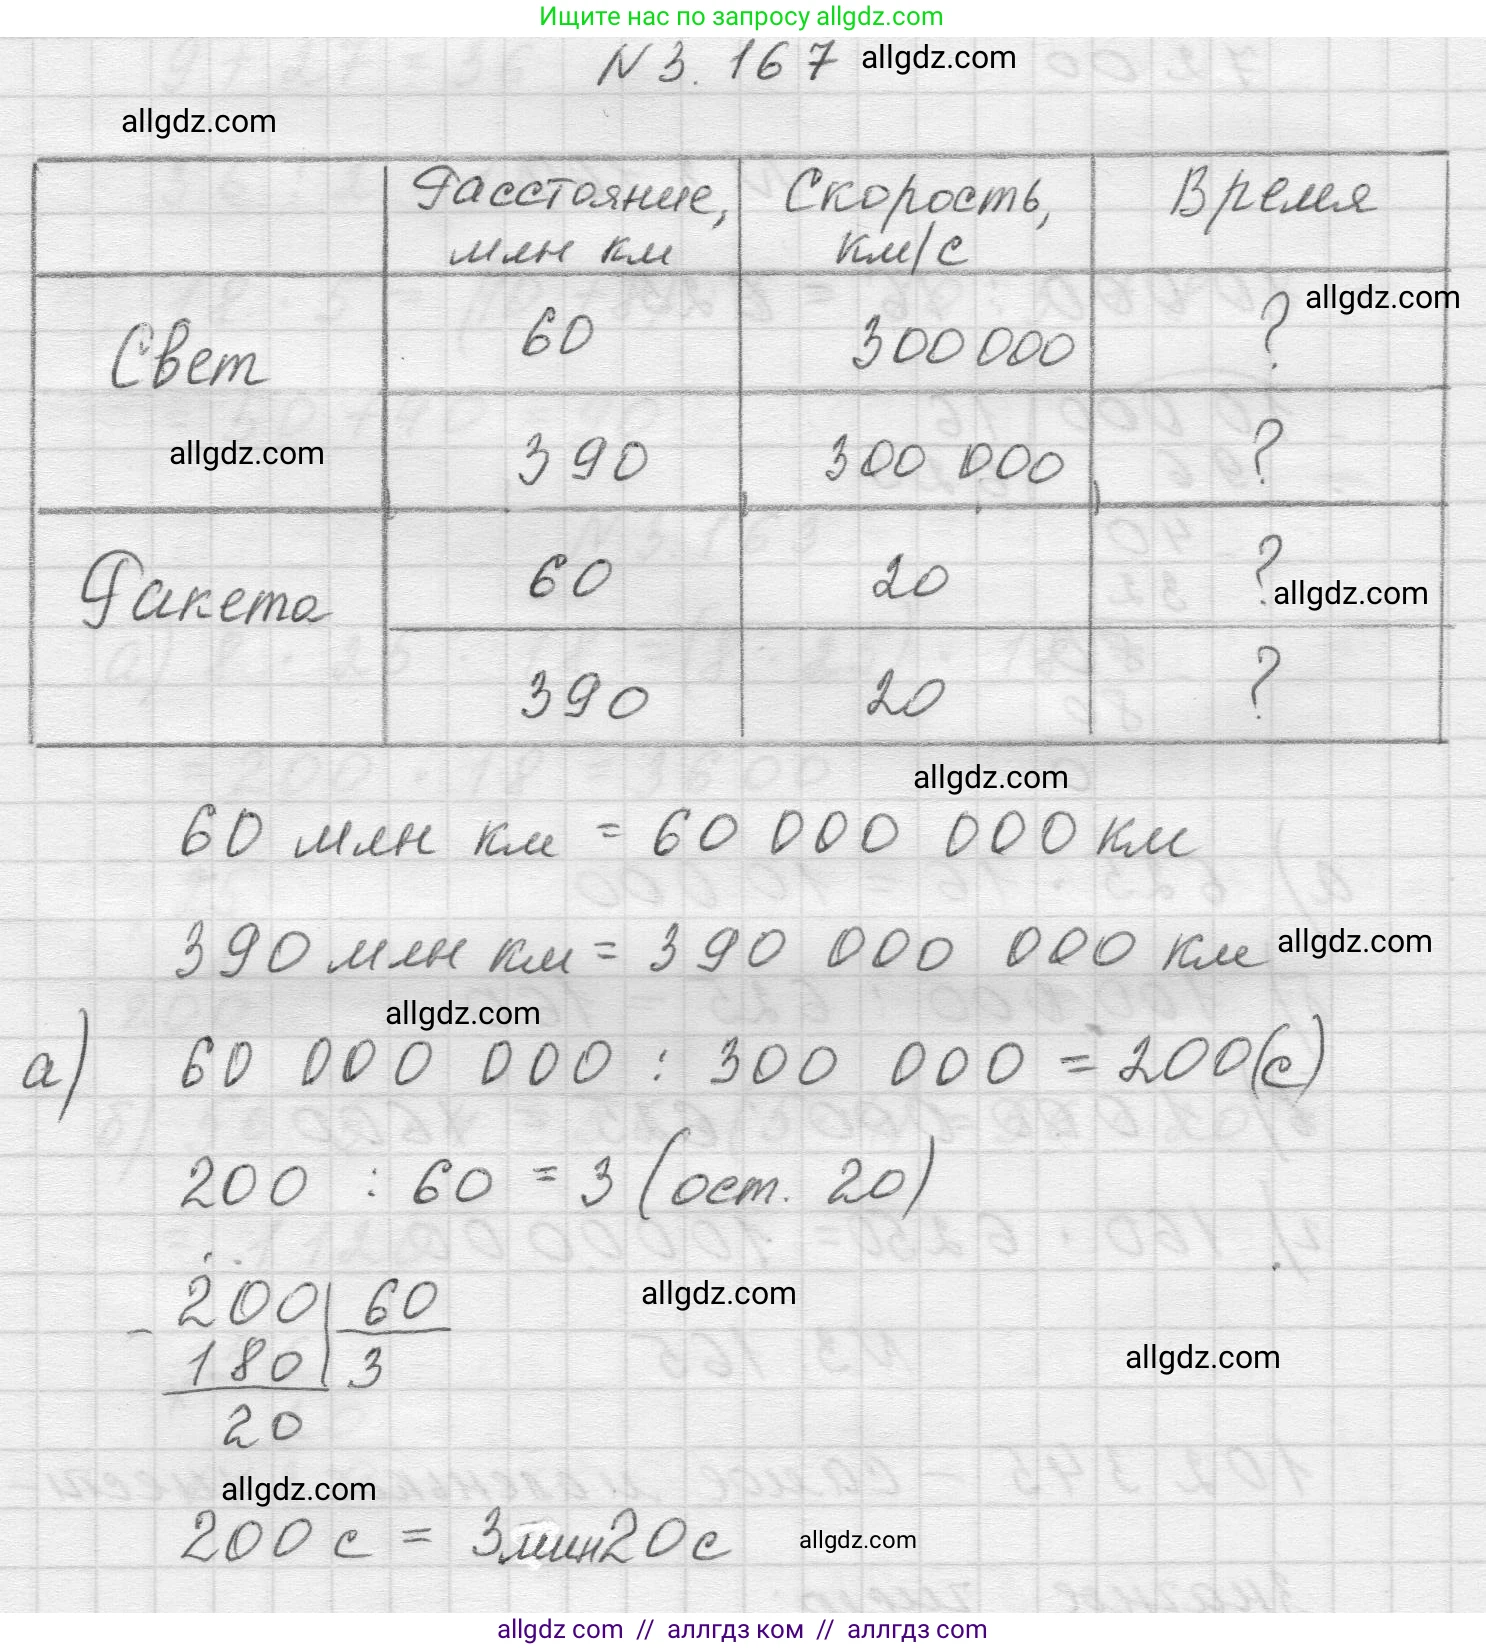 Ищите нас по запросу allgdz.com
N 3. 167 allgdz.com
allgdz.com
Расстояние, млн км Скорость, км/с Время
Свет 60 300 000 ? allgdz.com
allgdz.com 390 300 000 ?
Ракета 60 20 ? allgdz.com
390 20 ?
allgdz.com
60 млн км = 60 000 000 км
390 млн км = 390 000 000 км allgdz.com
allgdz.com
а) 60 000 000 : 300 000 = 200 (с)
200 : 60 = 3 (ост. 20)
- 200 | 60 allgdz.com
180 | 3 allgdz.com
20
allgdz.com
200 с = 3 мин 20 с allgdz.com
allgdz com // аллгдз ком // аллгдз com